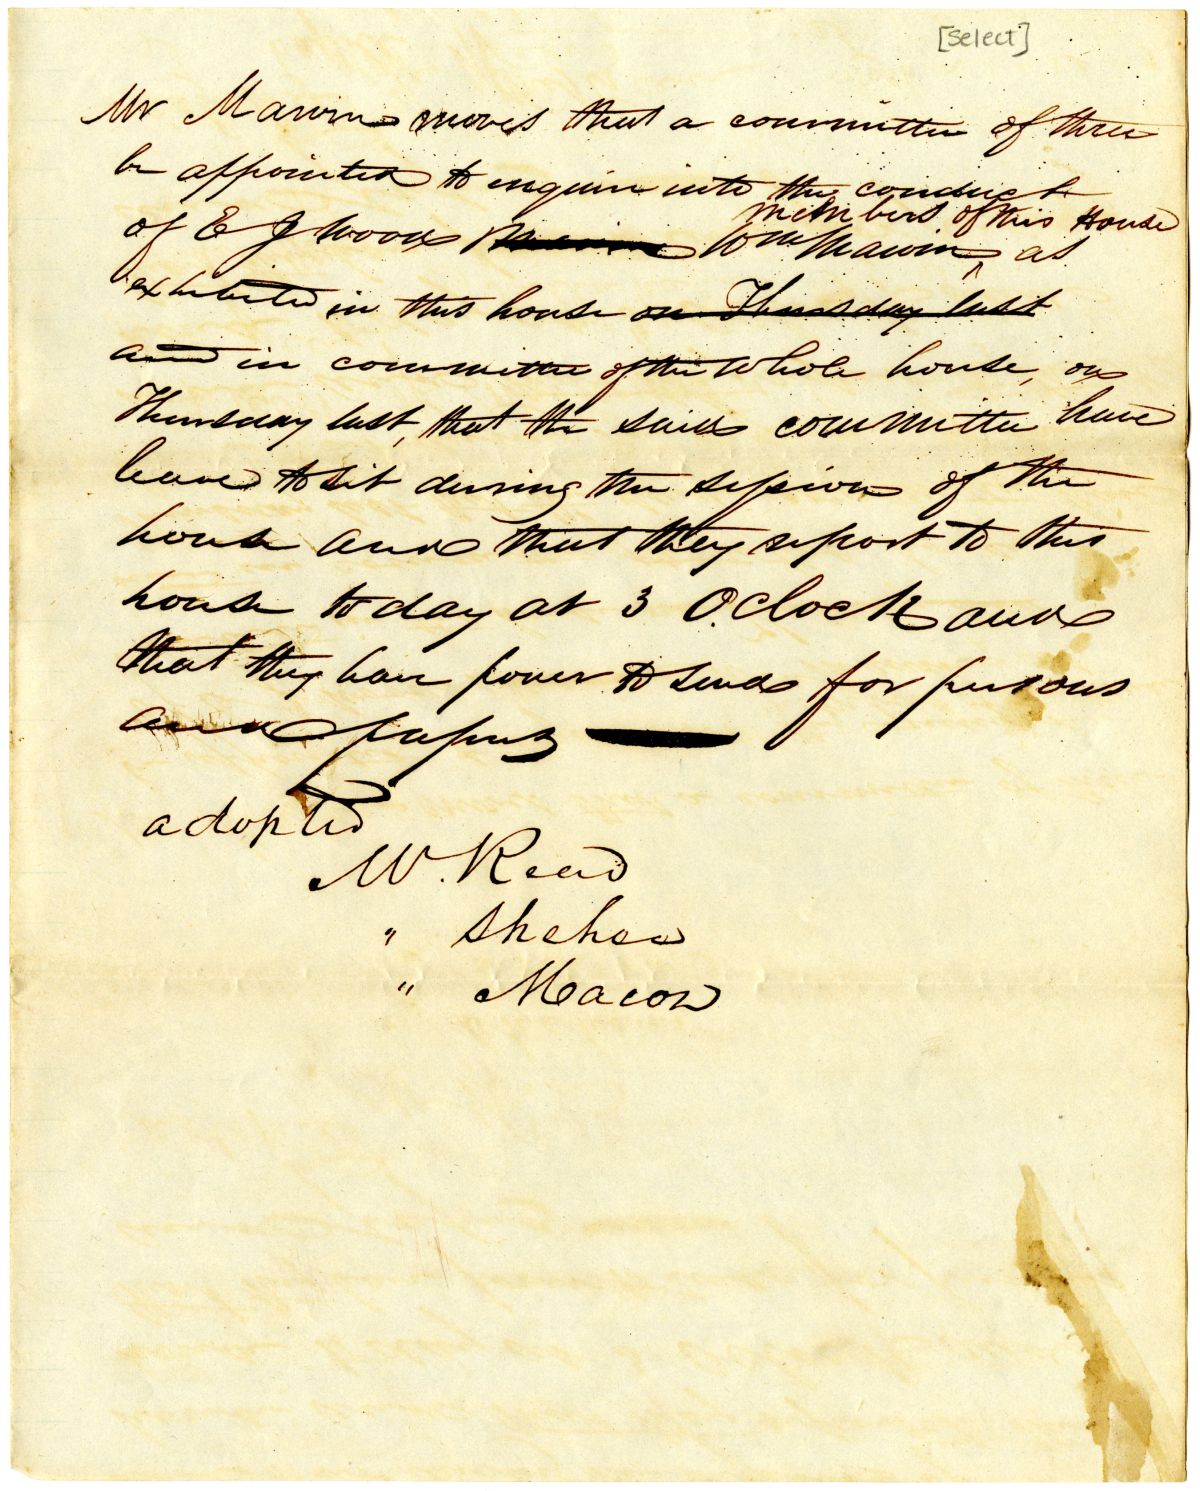 [Select]
Mr Marvin moves that a committee of three
be appointed to enquire into the conduct
members of this House
of E J Wood Wm Marvin, as
exhibited in this house on Thursday last
and in committee of the whole house, on
Thursday last, that the said committee have
leave to sit during the session of the
house and that they report to this
house to day at 3 O.clock and
that they have power to send for persons
and papers
adopted
Mr. Read
" Shehee
" Macon